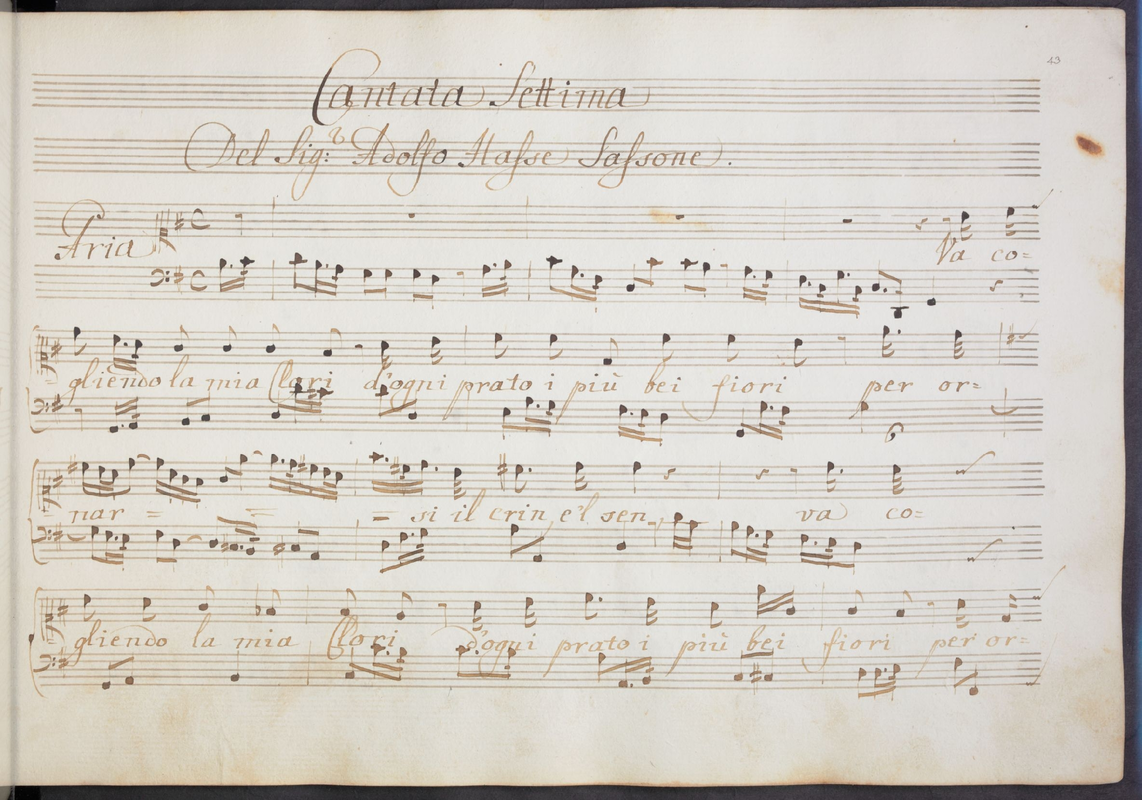 43
Cantata Settima
Del Sig:r Adolfo Hasse Sassone.
Aria
Va co=
gliendo la mia Clori d'ogni prato i più bei fiori per or=
nar = = = si il crin, e'l sen va co=
gliendo la mia Clori d'ogni prato i più bei fiori per or=